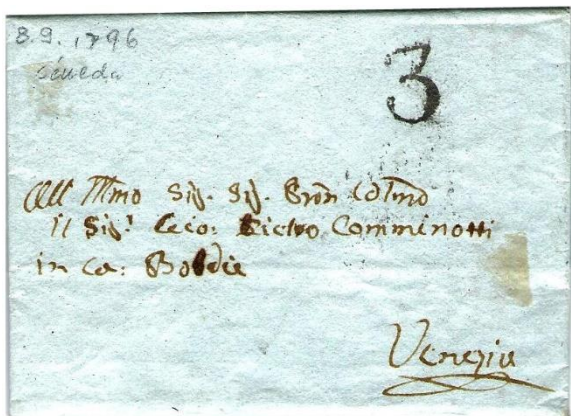 3.9.1796
Ceneda
3
All Illmo Sig. Sig. Pron Colmo
il Sigr Pietro Comminotti
in Ca:
Venezia